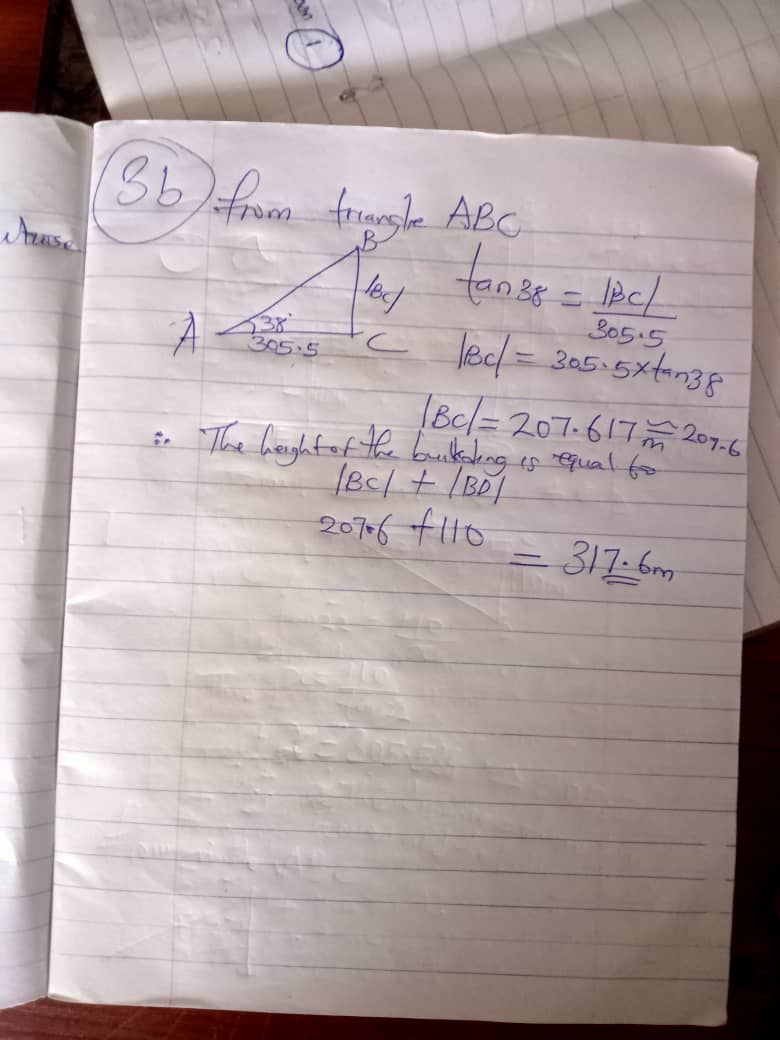 1
3b from triangle ABC
B
tan38 = |BC|
305.5
|BC|
A 38° C
305.5
|BC| = 305.5×tan38
|BC| = 207.617m ≈ 207.6
∴ The height of the building is equal to
|BC| + |BD|
207.6 + 110
= 317.6m